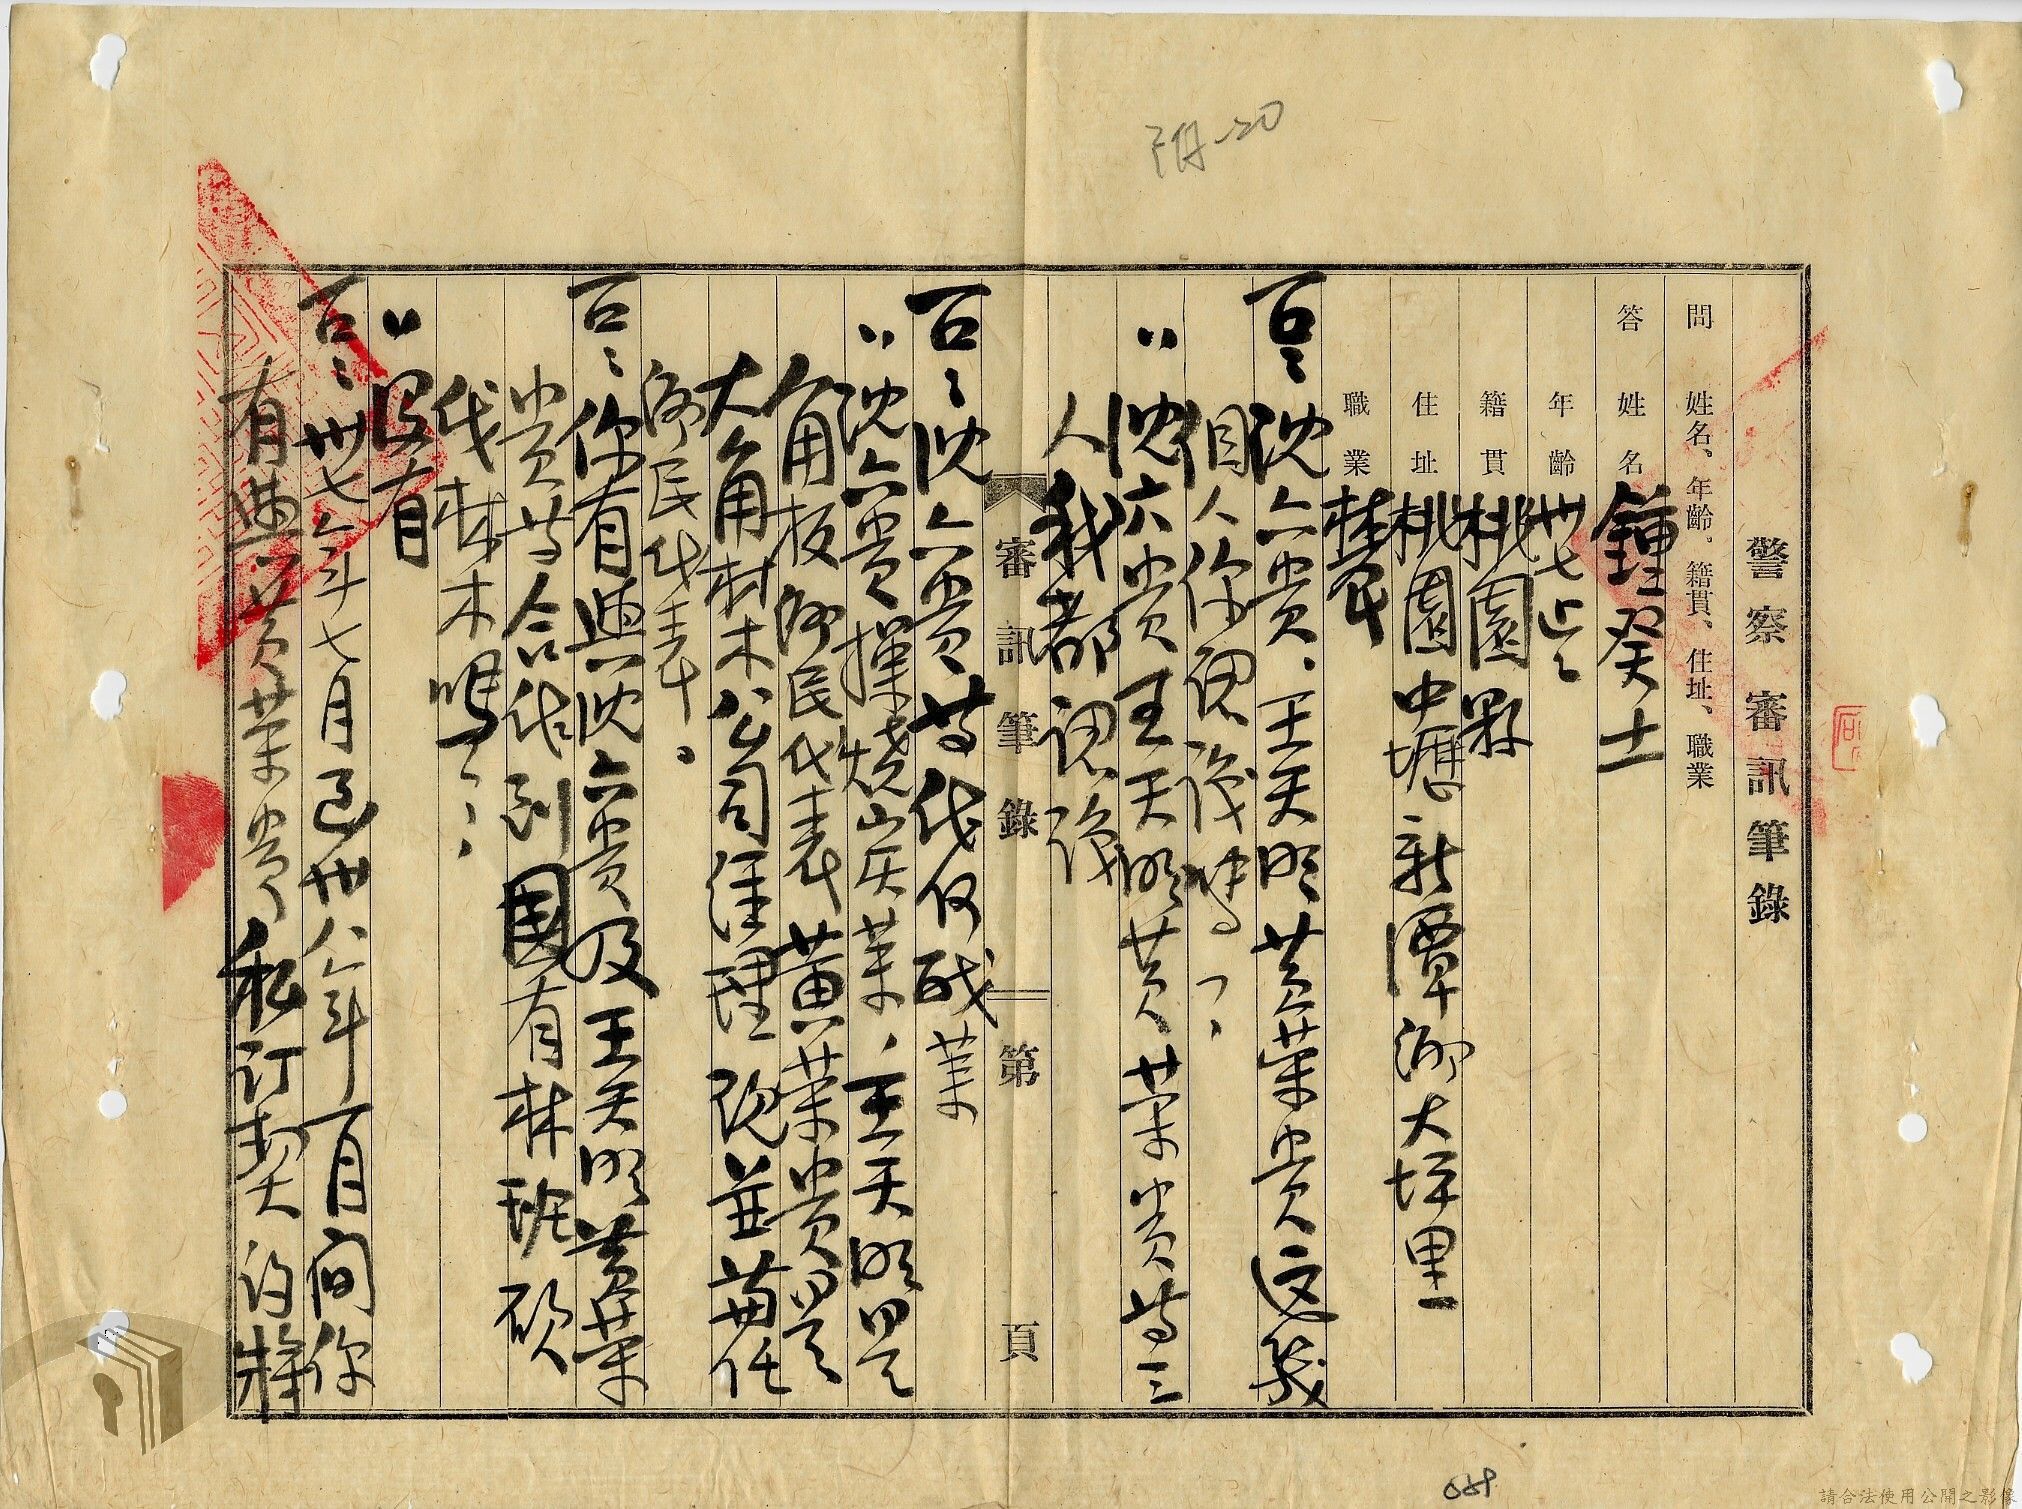 附-20
警察審訊筆錄
問 姓名、年齡。籍貫、住址、職業
答 姓名 鍾癸士
年齡 卅七歲
籍貫 桃園縣
住址 桃園中壢新潭鄉大坪里
職業 農
問：沈六貴、王天明黃葉貴這幾
個人你認識嗎？
〃沈六貴王天明黃葉貴等三
人我都認識
審訊筆錄 第 頁
問：沈六貴等代何職業
〃沈六貴操燒炭業、王天明是
角板鄉民代表黃葉貴是
大角材木公司經理現並兼任
鄉民代表。
問：你有與沈六貴及王天明黃葉
貴等合代到國有林班砍
伐林木嗎？
〃沒有
問：卅七年七月至卅八年 月間你
有與黃葉貴私訂契約將
089
請合法使用公開之影像